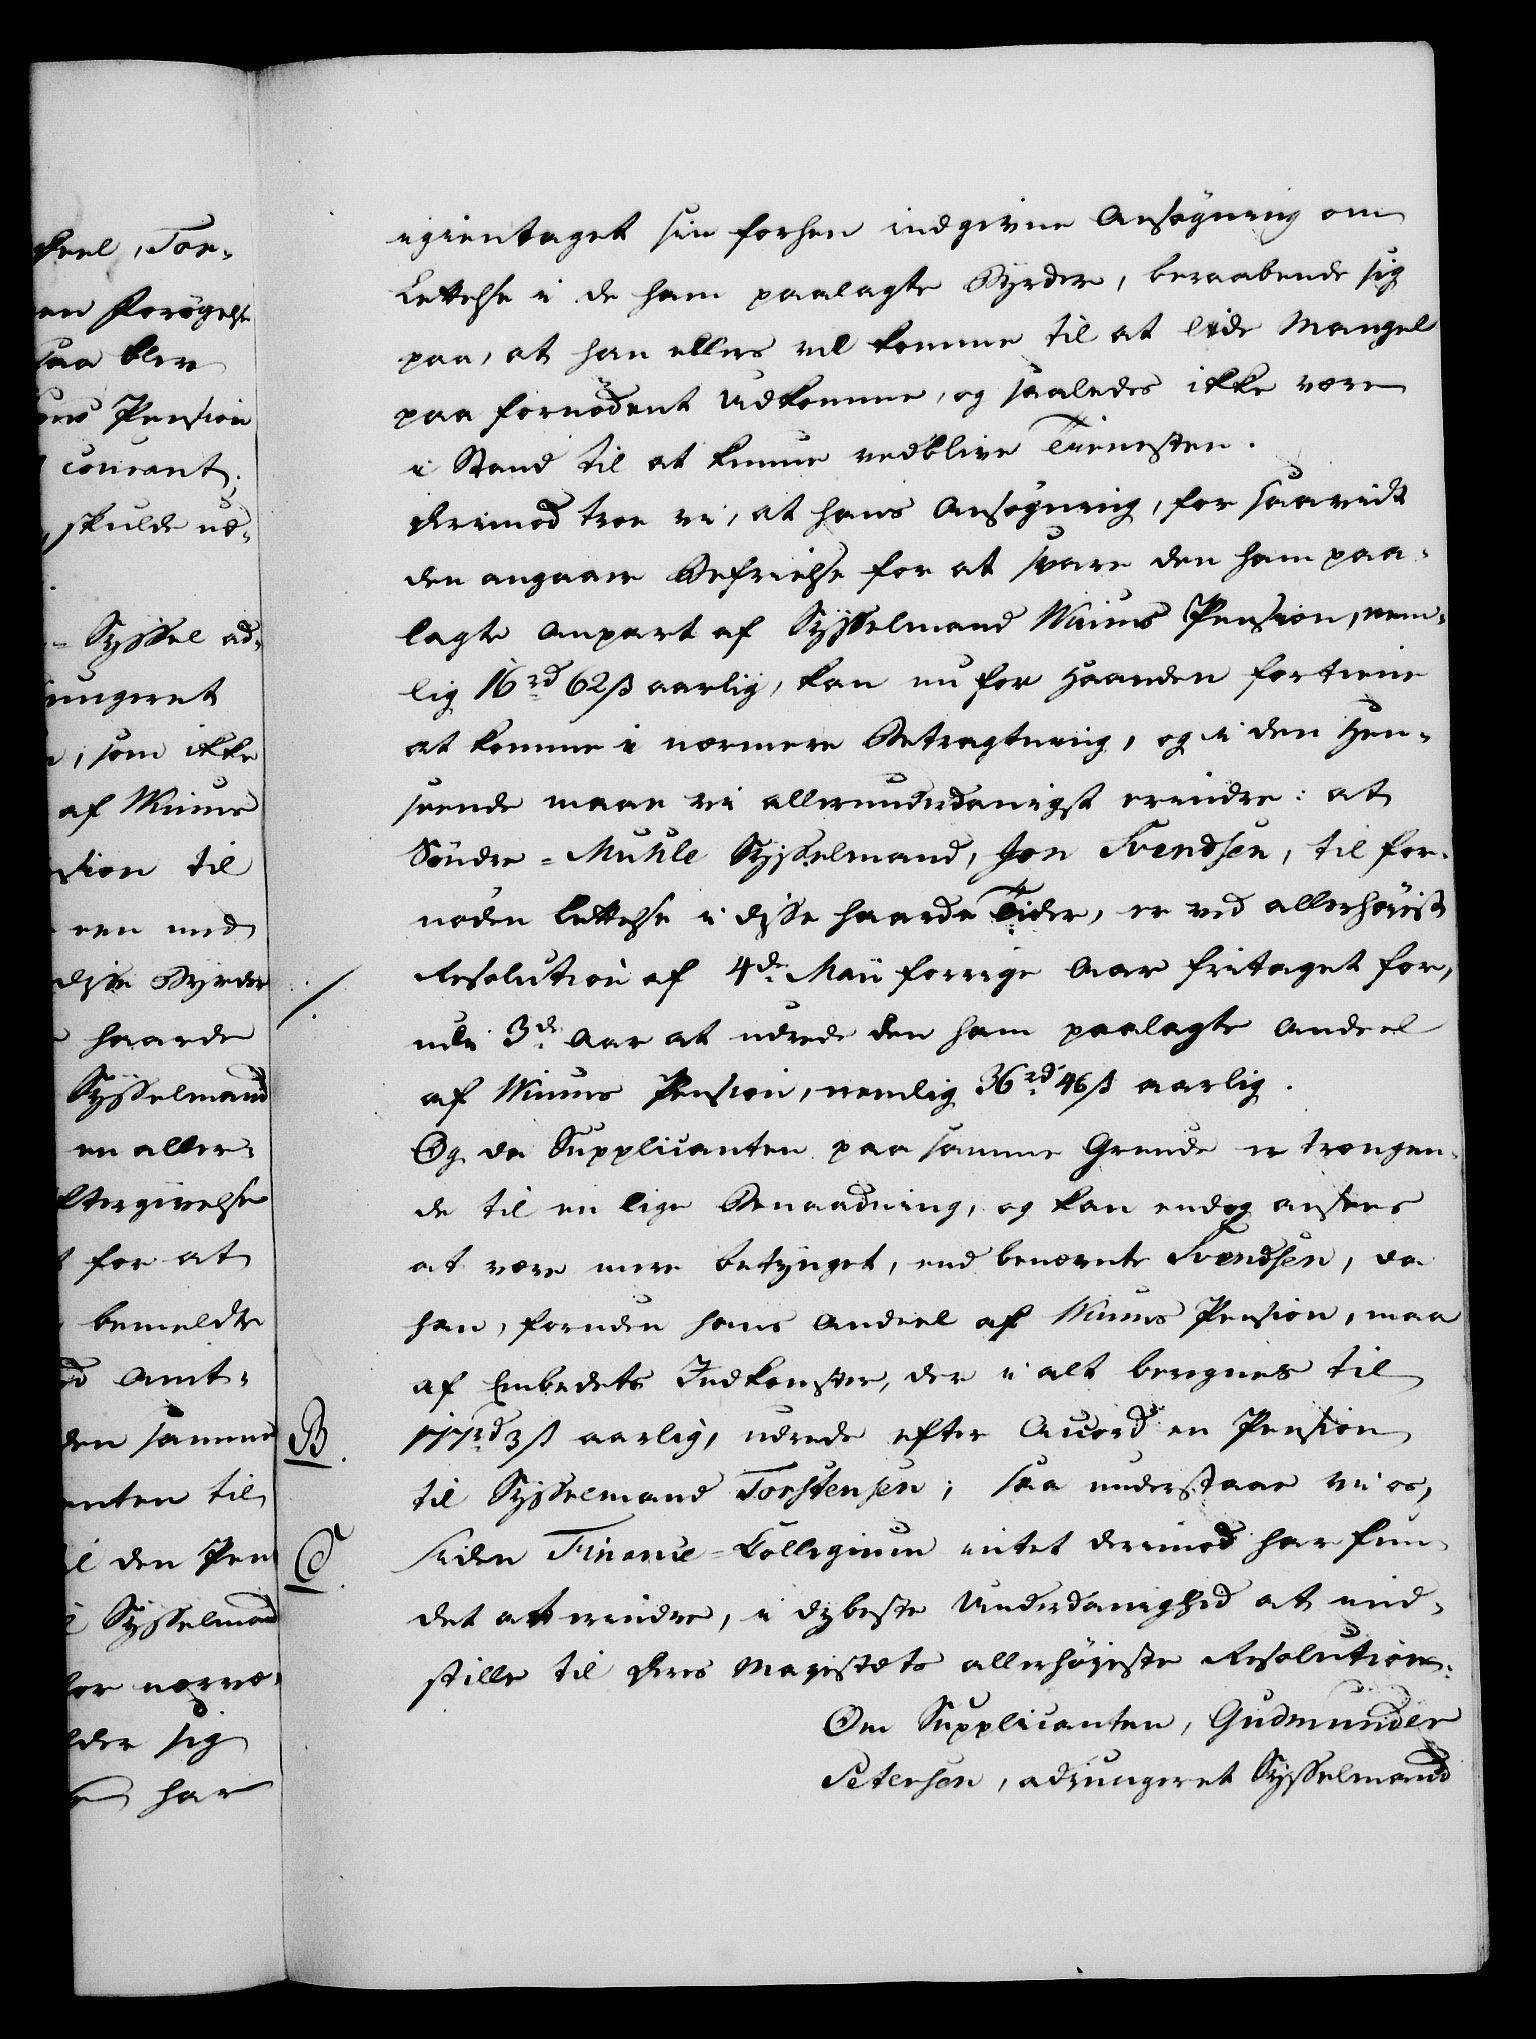 keel, Tor-
en Forøgelse
saa blev
ons Pension
courant;
skulde ud-
- Syssel ad-
jungeret
, som ikke
af Wiums
sion til
een med
disse Byrder
haarde
Sysselmand
en aller-
ftergivelse
for at
bemeldte
Amt-
den samme
anten til
den Pen
Sysselmand
for nærvæ-
lder sig
har
igientaget sin forhen indgivne Ansøgning om
Lettelse i de ham paalagte Byrder, beraabende sig
paa, at han ellers vil komme til at lide Mangel
paa fornødent Udkomme, og saaledes ikke være
i Stand til at kunne vedblive Tienesten.
Derimod troe vi, at hans Ansøgning, for saavidt
den angaaer Befrielse for at svare den ham paa-
lagte Anpart af Sysselmand Wiums Pension, nem-
lig 16rd 62ß aarlig, kan nu for Haanden fortiene
at komme i nærmere Betragtning, og i den Hen-
seende maae vi allerunderdanigst erindre: at
Søndre-Muhle Sysselmand, Jon Svendsen, til for-
nøden Lettelse i disse haarde Tider, er ved allerhøieste
Resolution af 4de Maii forrige Aar fritaget for,
udi 3de Aar at udrede den ham paalagte Andeel
af Wiums Pension, nemlig 36rd 46ß aarlig.
Og da Supplicanten paa samme Grunde er trængen-
de til en lige Benaadning, og kan endog ansees
at være mere betynget, end benævnte Svendsen, da
han, foruden hans Andeel af Wiums Pension, maa
af Embedets Indkomster, der i alt beregnes til
B. 177rd 3ß aarlig, udrede efter Accord en Pension
til Sysselmand Torstensen; saa understaae vi os,
C. siden Finance-Collegium intet derimod har fun-
det at erindre, i dybeste Underdanighed at ind-
stille til Deres Majestæts allerhøieste Resolution:
Om Supplicanten, Gudmunder
Petersen, adjungeret Sysselmand